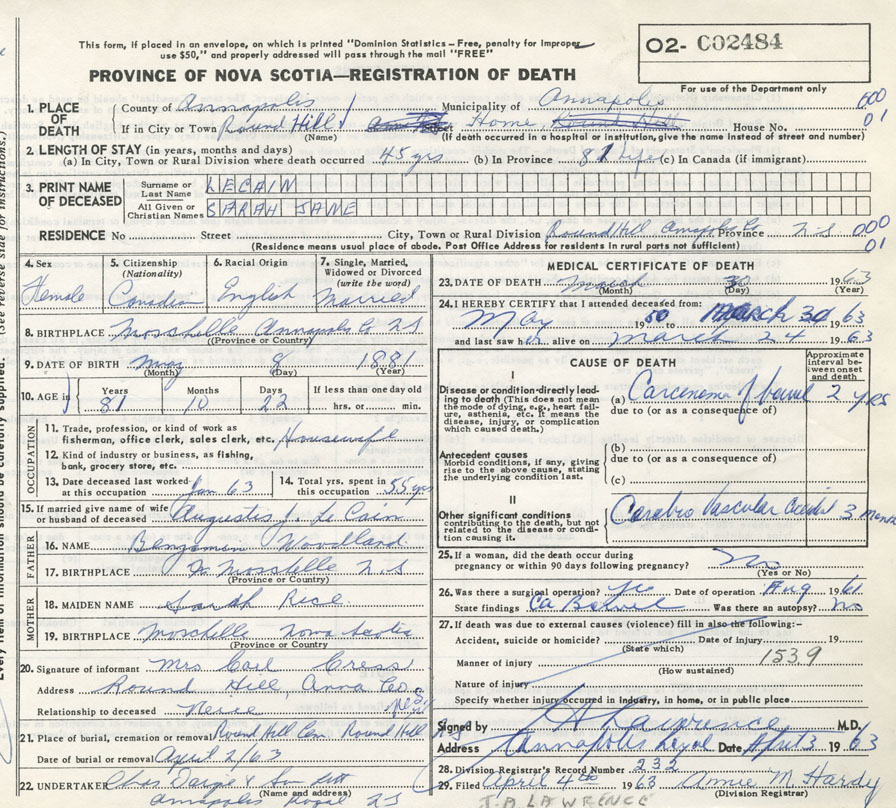 This form, if placed in an envelope, on which is printed "Dominion Statistics - Free, penalty for improper
use $50," and properly addressed will pass through the mail "FREE"
O2- C02484
PROVINCE OF NOVA SCOTIA—REGISTRATION OF DEATH
For use of the Department only
1. PLACE OF DEATH
County of Annapolis Municipality of Annapolis 000
If in City or Town Round Hill Street Home, Round Hill House No. 01
(Name) (If death occurred in a hospital or institution, give the name instead of street and number)
2. LENGTH OF STAY (in years, months and days)
(a) In City, Town or Rural Division where death occurred 45 yrs (b) In Province 81 life (c) In Canada (if immigrant)
3. PRINT NAME OF DECEASED
Surname or Last Name LECAIN
All Given or Christian Names SARAH JANE
RESIDENCE No Street City, Town or Rural Division Round Hill Annapolis Co Province N.S 000
(Residence means usual place of abode. Post Office Address for residents in rural parts not sufficient) 01
4. Sex Female
5. Citizenship (Nationality) Canadian
6. Racial Origin English
7. Single, Married, Widowed or Divorced (write the word) Married
8. BIRTHPLACE Moschelle Annapolis Co NS
(Province or Country)
9. DATE OF BIRTH May 8 1881
(Month) (Day) (Year)
10. AGE in Years 81 Months 10 Days 22 If less than one day old
hrs. or min.
OCCUPATION
11. Trade, profession, or kind of work as
fisherman, office clerk, sales clerk, etc. Housewife
12. Kind of industry or business, as fishing,
bank, grocery store, etc.
13. Date deceased last worked at this occupation Jan 63
14. Total yrs. spent in this occupation 55 yrs
15. If married give name of wife or husband of deceased Augustis J. Le Cain
FATHER
16. NAME Benjamin Woodland
17. BIRTHPLACE Moschelle N.S
(Province or Country)
MOTHER
18. MAIDEN NAME Sarah Rice
19. BIRTHPLACE Moschelle Nova Scotia
(Province or Country)
20. Signature of informant Mrs Cress
Address Round Hill, Anna Co. N.S.
Relationship to deceased Niece
21. Place of burial, cremation or removal Round Hill Cem Round Hill
Date of burial or removal April 2/63
22. UNDERTAKER
(Name and address)
Annapolis Royal NS
MEDICAL CERTIFICATE OF DEATH
23. DATE OF DEATH March 30 1963
(Month) (Day) (Year)
24. I HEREBY CERTIFY that I attended deceased from:
May 1950 to March 30 1963
and last saw h alive on March 24 1963
CAUSE OF DEATH
Approximate interval between onset and death
I
Disease or condition directly leading to death (This does not mean the mode of dying, e.g., heart failure, asthenia, etc. It means the disease, injury, or complication which caused death.)
(a) Carcenema of bowel 2 yrs
due to (or as a consequence of)
Antecedent causes
Morbid conditions, if any, giving rise to the above cause, stating the underlying condition last.
(b)
due to (or as a consequence of)
(c)
II
Other significant conditions
contributing to the death, but not related to the disease or condition causing it.
Vascular 3
25. If a woman, did the death occur during
pregnancy or within 90 days following pregnancy? No
(Yes or No)
26. Was there a surgical operation? Date of operation Aug 1961
State findings Ca Bowel Was there an autopsy? No
27. If death was due to external causes (violence) fill in also the following:—
Accident, suicide or homicide? Date of injury 19
(State which)
Manner of injury 1539
(How sustained)
Nature of injury
Specify whether injury occurred in industry, in home, or in public place
Signed by Lawrence M.D.
Address Annapolis Royal Date April 3 1963
28. Division Registrar's Record Number 232
29. Filed April 4th 1963 Annie M. Hardy
(Division Registrar)
J.A LAWRENCE
Every item of information should be carefully supplied. (See reverse side for instructions.)